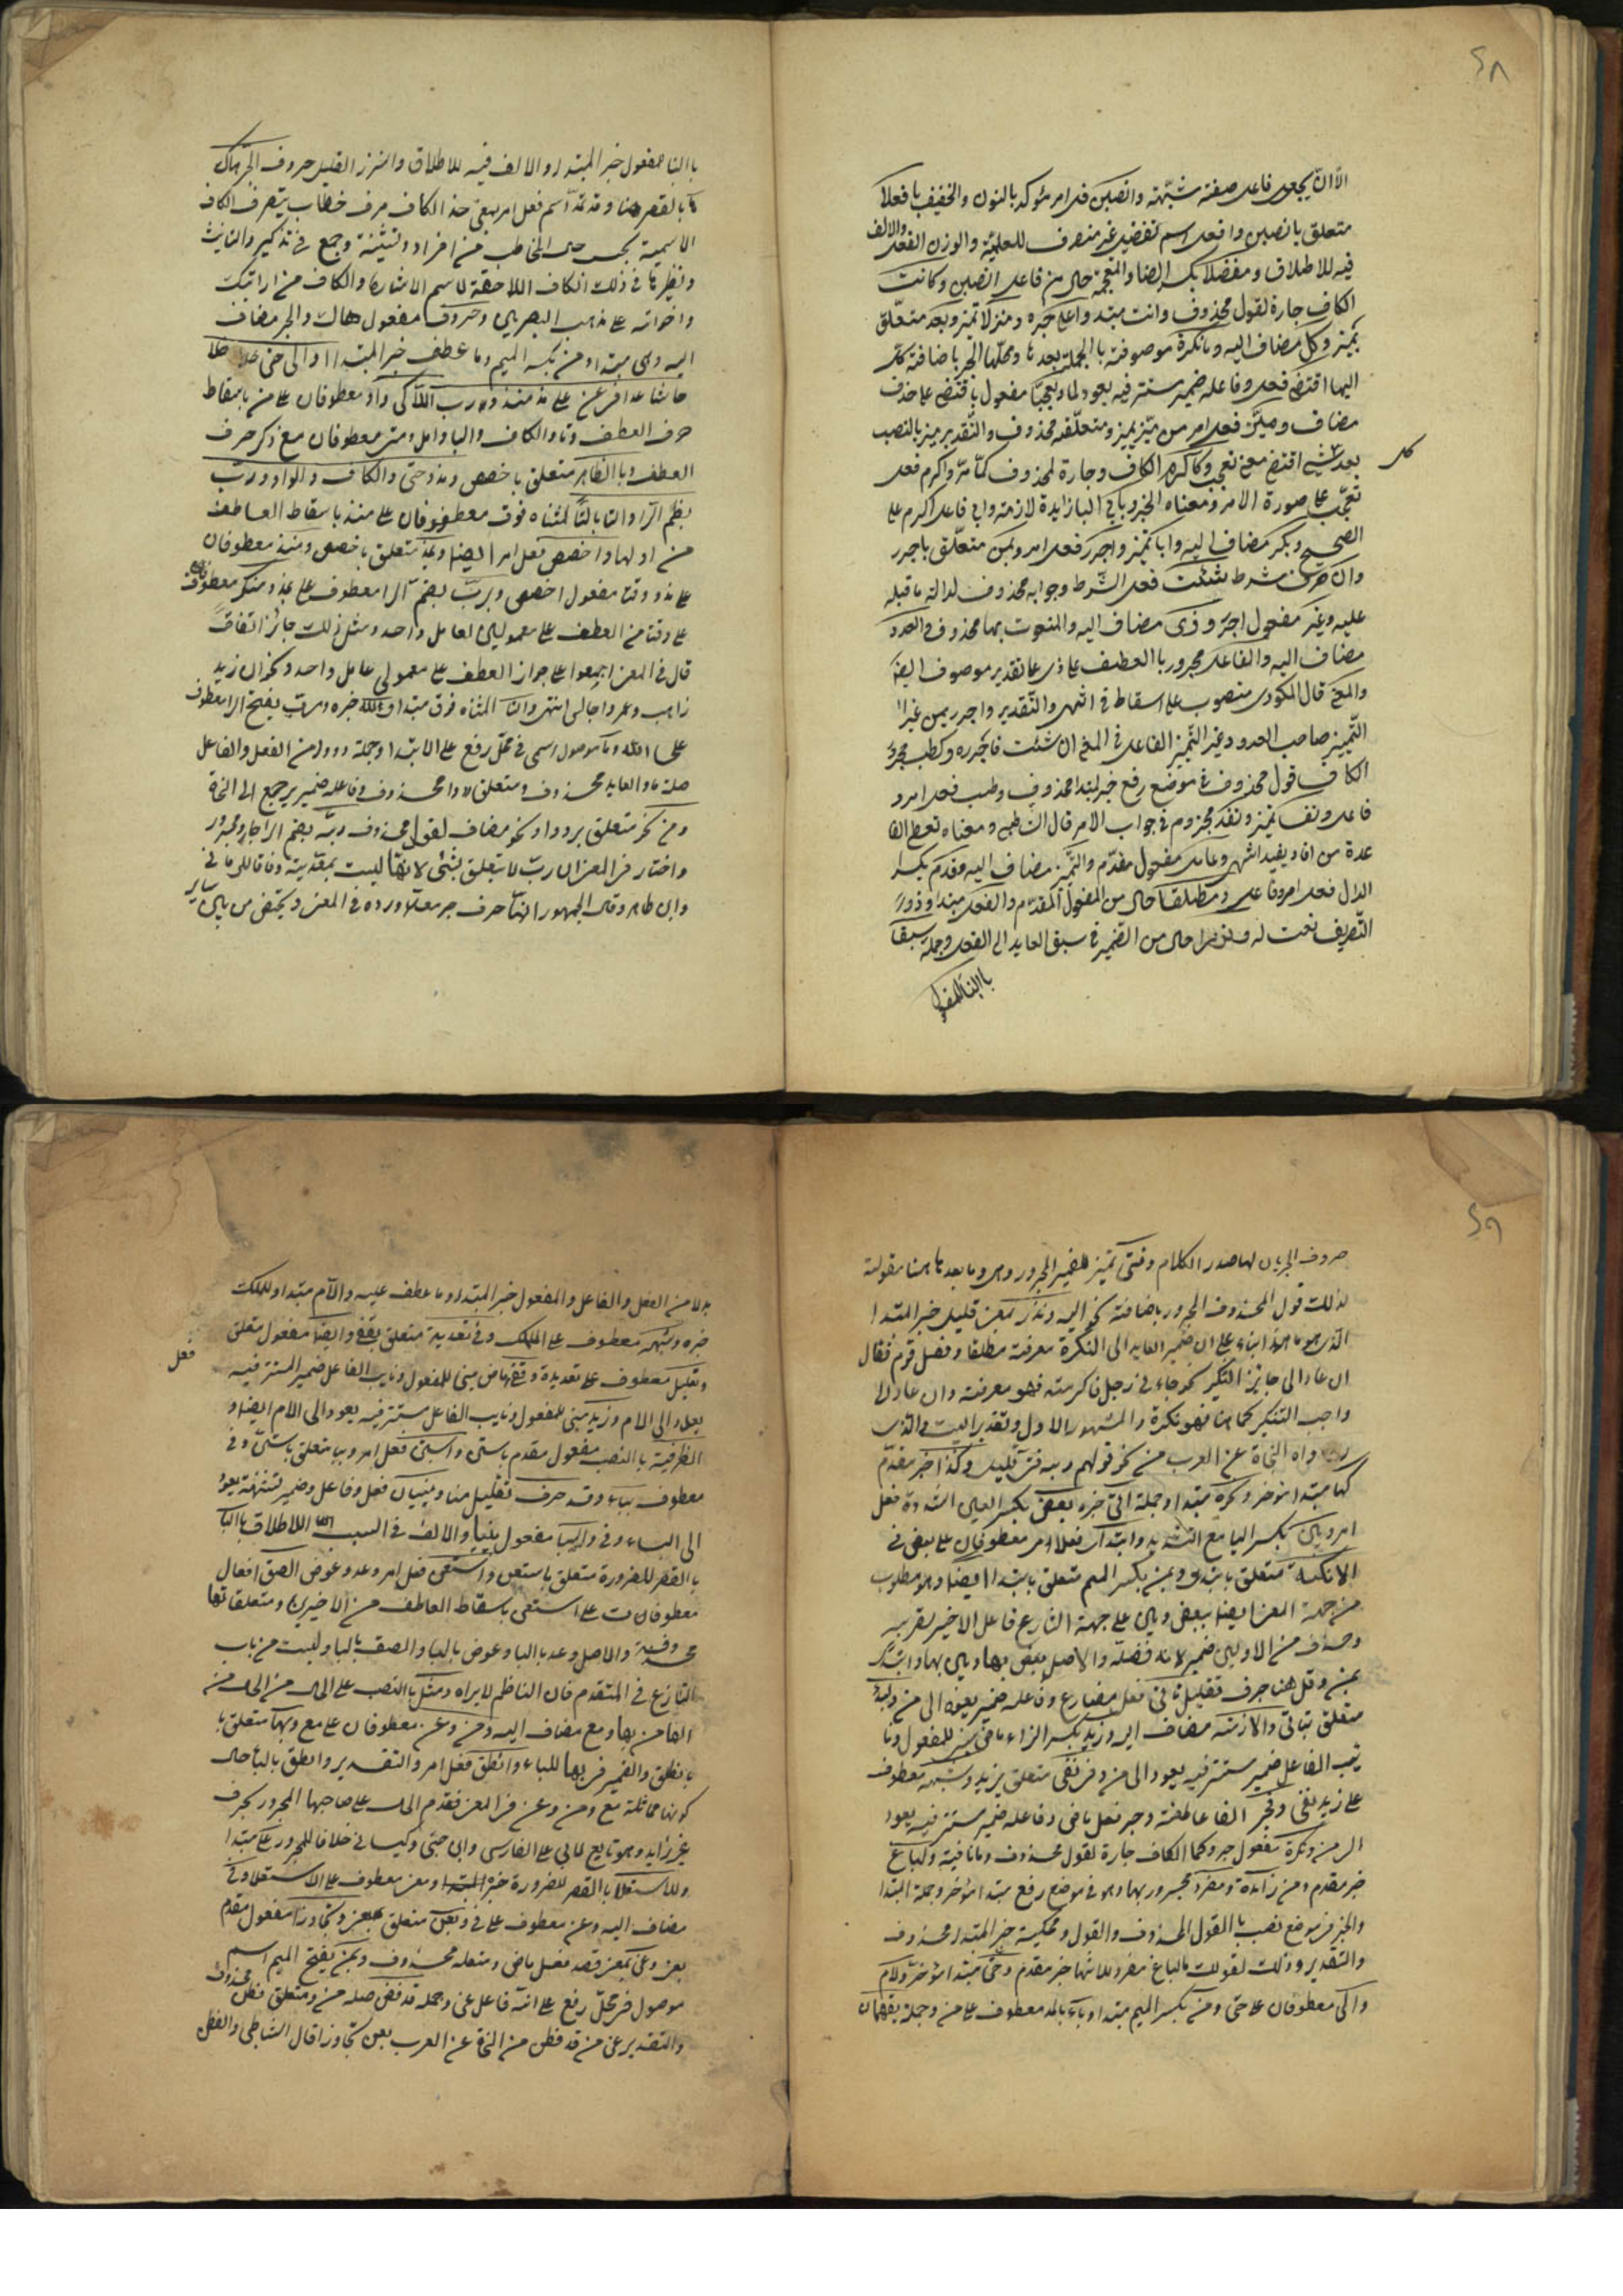 ٤٨
الا ان يجعل فاعل صفة مشبهة وانصبن فعل امر مؤكد بالنون والخفيف بافعلا
متعلق بانصبن وافعل اسم تفضيل غير منصرف للعلمية والوزن الفعل والالف
فيه للاطلاق ومفضلا بكسر الضاد المعجمة حال من فاعل انصبن وكانت
الكاف جارة لقول محذوف وانت مبتدا واعلى خبره ومنزلا تميز وبعد متعلق
بميز وكل مضاف اليه وما نكرة موصوفة باالجملة بعدها ومحلها الجر باضافة كل
اليها اقتضى فعل وفاعله ضمير مستتر فيه يعود لما وتعجبا مفعول باقتضى على حذف
مضاف وميز فعل امر من ميز يميز ومتعلقه محذوف والتقدير ميز بالنصب
كل
بعد شئ اقتضى معنى تعجب وكاكرم الكاف جارة لمحذوف كما مر واكرم فعل
تعجب على صورة الامر ومعناه الخبر وبابي البا زايدة لازمة وابي فاعل اكرم على
الصحيح وبكر مضاف اليه وابا تميز واجرر فعل امر وبمن متعلق باجرر
وان حرف شرط شئت فعل الشرط وجوابه محذوف لدلالة ما قبله
عليه وغير مفعول اجرر وذي مضاف اليه والمنعوت بهما محذوف والعدد
مضاف اليه والفاعل مجرور باالعطف على ذي على تقدير موصوف ايضا
والمعنى قال المكودي منصوب على اسقاط في انتهى والتقدير واجرر بمن غير
التمييز صاحب العدد وغير التميز الفاعل في المعنى ان شئت فاجرره وكطب مجرور
الكاف قول محذوف في موضع رفع خبر لمبتدا محذوف وطب فعل امر و
فاعل ونفسا تميز وتفد مجزوم في جواب الامر قال الشاطبي ومعناه تعط الفا
ئدة من افاد يفيد انتهى وعامل مفعول مقدم والتميز مضاف اليه وقدم بكسر
الدال فعل امر وفاعل ومطلقا حال من المفعول المقدم والفعل مبتدا وذو
التصريف نعت له ونزرا حال من الضمير في سبق العايد الى الفعل وجملة سبقا
باالبنا للمفعول
باالبنا للمفعول خبر المبتدا والالف فيه للاطلاق والنزر القليل حروف الجر هاك
ها بالقصر هنا وقد تمد اسم فعل امر بمعنى خذ الكاف حرف خطاب يتصرف الكاف
الاسمية بحسب حال المخاطب من افراد وتثنية وجمع في تذكير والتانيث
ونظيرها في ذلك الكاف اللاحقة لاسم الاشارة والكاف من ارايتك
واخواته على مذهب البصريين وحروف مفعول هاك والجر مضاف
اليه وهي مبتدا ومن بكسر الميم وما عطف خبر المبتدا الى حتى خلا
حاشا عدا في عن على مذ منذ رب اللام كي واو معطوفان على من باسقاط
حرف العطف وتا والكاف والبا ولعل ومتى معطوفان مع ذكر حرف
العطف وباالظاهر متعلق باخصص ومذ وحتى والكاف والواو ورب
بضم الرا والتا بالتا المثناه فوق معطوفان على منذ باسقاط العاطف
من اولها واخصص فعل امر ايضا وبمذ متعلق باخصص ومنذ معطوفان
على مذ ووقتا مفعول اخصص وبرب بضم الرا معطوف على بمذ ومنكر معطوف
على وقتا من العطف على معمولين لعامل واحد ومثل ذلك جائز اتفاقا
قال في المغني اجمعوا على جواز العطف على معمولي عامل واحد نحو ان زيد
ذاهب وعمروا جالس انتهى والتا المثناه فوق مبتدا ولله خبره ورب بفتح الرا معطوف
على الله وما موصول اسمي في محل رفع على الابتدا وجملة رووا من الفعل والفاعل
صلة ما والعايد محذوف ومتعلق رووا محذوف وفاعله ضمير يرجع الى النحاة
ومن نحو متعلق برووا ونحو مضاف لقول محذوف ربه بضم الرا جار ومجرور
واختار في المغني ان رب لا يتعلق بشئ لانها ليست بمعدية وفاقا للرماني
وابن طاهر وقال الجمهور انها حرف جر معد ورده في المغني ويختص من بين ساير
٤٩
حروف الجر بان لها صدر الكلام وفتى تميز للضمير المجرور وهي وما بعدها هنا مقولة
لذلك قول المحذوف المجرور باضافة نحو اليه ونزر بمعنى قليل خبر المبتدا
الذي هو ما وهذا بناء على ان ضمير العايد الى النكرة معرفة مطلقا وفصل قوم فقال
ان عاد الى جايز التنكير نحو جاءني رجل فاكرمته فهو معرفة وان عاد لا
واجب التنكير كما هنا فهو نكرة والمشهور الاول وتقدير البيت والذي
رواه النحاة عن العرب من نحو قولهم ربه فتى قليل وكذا خبر مقدم
كها مبتدا مؤخر ونحوه مبتدا وجملة اتى خبره بعض بكسر العين المشددة فعل
امر وبين بكسر اليا مع التشديد وابتدئ فعلا امر معطوفان على بعض في
الامكنة متعلق بابتدئ وبمن بكسر الميم متعلق بابتدا ايضا وهو مطلوب
من جهة المعنى ايضا لبعض وبين على جهة التنازع فاعل الاخير لقربه
وحذف من الاولين ضميره لانه فضلة والاصل بعض بها وبين بها وابتدئ
بمن وقد هنا حرف تقليل تاتي فعل مضارع وفاعله ضمير يعود الى من ولبدء
متعلق بتاتي والازمنة مضاف اليه وزيد بكسر الزاء ماضي مبني للمفعول ونا
ئب الفاعل ضمير مستتر فيه يعود الى من وفي نفي متعلق بزيد وشبهه معطوف
على زيد نفي وفجر الفا عاطفة وجر فعل ماضي وفاعله ضمير مستتر فيه يعود
الى من ونكرة مفعول جر وكما الكاف جارة لقول محذوف وما نافية ولباغ
خبر مقدم ومن زايدة ومفر مجرور بها وهو في موضع رفع مبتدا مؤخر وجملة المبتدا
والخبر في موضع نصب باالقول المحذوف والقول ومحكيه خبر المبتدا محذوف
والتقدير وذلك لقولك ما لباغ مفر وللانتها خبر مقدم وحتى مبتدا مؤخر ولام
والى معطوفان على حتى ومن بكسر الميم مبتدا وباء بالمد معطوف على من وجملة يفهمان
بدلا من الفعل والفاعل والمفعول خبر المبتدا وما عطف عليه واللام مبتدا وللملك
خبره وشبهه معطوف على الملك وفي تعدية متعلق بقفي وايضا مفعول مطلق
فعل
وتعليل معطوف على تعدية وقفي ماض مبني للمفعول ونايب الفاعل ضمير المستتر فيه
يعود الى اللام وزيد مبني للمفعول ونايب الفاعل مستتر فيه يعود الى اللام ايضا و
الظرفية باالنصب مفعول مقدم باستبن واستبن فعل امر وببا متعلق باستبن وفي
معطوف بباء وقد حرف تقليل هنا ويبينان فعل وفاعل وضمير تثنية يعود
الى الباء وفي والسببا مفعول يبينا والالف في السببا للاطلاق باالبا
باالقصر للضرورة متعلق باستعن واستعن فعل امر وعد وعوض الصق افعال
معطوفات على استعن باسقاط العاطف من الاخيرين ومتعلقاتها
محذوفة والاصل وعد بالبا وعوض بالبا والصق بالبا وليست من باب
التنازع في المتقدم فان الناظم لايراه ومثل باالنصب على الحال من
الها من بها ومع مضاف اليه ومن وعن معطوفان على مع وبها متعلق با
بانطق والضمير في بها للباء وانطق فعل امر والتقدير وانطق بالباء حال
كونها مماثلة مع ومن وعن في المعنى فقدم الحال على صاحبها المجرور بحرف
غير زايد وهو تابع لابي علي الفارسي وابن جني وكيسان خلافا للجمهور على مبتدا
وللاستعلا باالقصر للضرورة خبر المبتدا ومعنى معطوف على الاستعلا وفي
مضاف اليه وعن معطوف على في وبعن متعلق بمعنى وتجاوزا مفعول مقدم
بعنى وعنى بمعنى قصد فعل ماضي ومتعلقه محذوف ومن بفتح الميم اسم
موصول في محل رفع على انه فاعل عنى وجملة قد فطن صلة من ومتعلق فطن محذوف
والتقدير عنى من قد فطن من النحاة عن العرب بعن تجاوزا قال الشاطبي والفطن